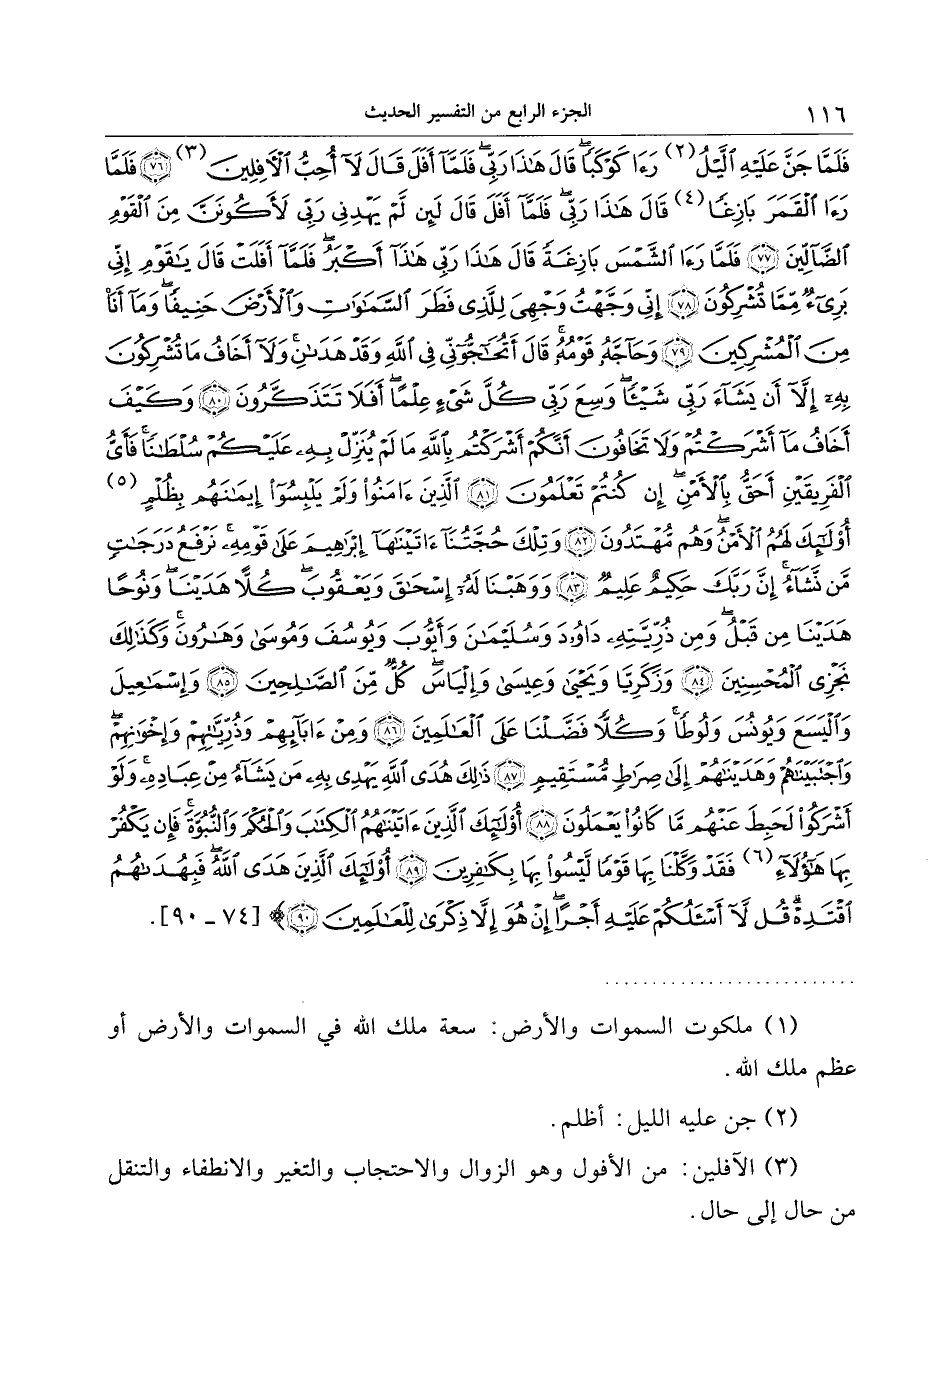 ١١٦ الجزء الرابع من التفسير الحديث
فَلَمَّا جَنَّ عَلَيْهِ ٱلَّيْلُ (٢) رَءَا كَوْكَبًا ۖ قَالَ هَٰذَا رَبِّي ۖ فَلَمَّآ أَفَلَ قَالَ لَآ أُحِبُّ ٱلْأٓفِلِينَ (٣) ﴿٧٦﴾ فَلَمَّا
رَءَا ٱلْقَمَرَ بَازِغًا (٤) قَالَ هَٰذَا رَبِّي ۖ فَلَمَّآ أَفَلَ قَالَ لَئِن لَّمْ يَهْدِنِي رَبِّي لَأَكُونَنَّ مِنَ ٱلْقَوْمِ
ٱلضَّآلِّينَ ﴿٧٧﴾ فَلَمَّا رَءَا ٱلشَّمْسَ بَازِغَةً قَالَ هَٰذَا رَبِّي هَٰذَآ أَكْبَرُ ۖ فَلَمَّآ أَفَلَتْ قَالَ يَٰقَوْمِ إِنِّي
بَرِيٓءٌ مِّمَّا تُشْرِكُونَ ﴿٧٨﴾ إِنِّي وَجَّهْتُ وَجْهِيَ لِلَّذِي فَطَرَ ٱلسَّمَٰوَٰتِ وَٱلْأَرْضَ حَنِيفًا ۖ وَمَآ أَنَا۠
مِنَ ٱلْمُشْرِكِينَ ﴿٧٩﴾ وَحَآجَّهُۥ قَوْمُهُۥ ۚ قَالَ أَتُحَٰٓجُّوٓنِّي فِي ٱللَّهِ وَقَدْ هَدَىٰنِ ۚ وَلَآ أَخَافُ مَا تُشْرِكُونَ
بِهِۦٓ إِلَّآ أَن يَشَآءَ رَبِّي شَيْـًٔا ۗ وَسِعَ رَبِّي كُلَّ شَيْءٍ عِلْمًا ۗ أَفَلَا تَتَذَكَّرُونَ ﴿٨٠﴾ وَكَيْفَ
أَخَافُ مَآ أَشْرَكْتُمْ وَلَا تَخَافُونَ أَنَّكُمْ أَشْرَكْتُم بِٱللَّهِ مَا لَمْ يُنَزِّلْ بِهِۦ عَلَيْكُمْ سُلْطَٰنًا ۚ فَأَيُّ
ٱلْفَرِيقَيْنِ أَحَقُّ بِٱلْأَمْنِ ۖ إِن كُنتُمْ تَعْلَمُونَ ﴿٨١﴾ ٱلَّذِينَ ءَامَنُوا۟ وَلَمْ يَلْبِسُوٓا۟ إِيمَٰنَهُم بِظُلْمٍ (٥)
أُو۟لَٰٓئِكَ لَهُمُ ٱلْأَمْنُ ۖ وَهُم مُّهْتَدُونَ ﴿٨٢﴾ وَتِلْكَ حُجَّتُنَآ ءَاتَيْنَٰهَآ إِبْرَٰهِيمَ عَلَىٰ قَوْمِهِۦ ۚ نَرْفَعُ دَرَجَٰتٍ
مَّن نَّشَآءُ ۗ إِنَّ رَبَّكَ حَكِيمٌ عَلِيمٌ ﴿٨٣﴾ وَوَهَبْنَا لَهُۥٓ إِسْحَٰقَ وَيَعْقُوبَ ۚ كُلًّا هَدَيْنَا ۚ وَنُوحًا
هَدَيْنَا مِن قَبْلُ ۖ وَمِن ذُرِّيَّتِهِۦ دَاوُۥدَ وَسُلَيْمَٰنَ وَأَيُّوبَ وَيُوسُفَ وَمُوسَىٰ وَهَٰرُونَ ۚ وَكَذَٰلِكَ
نَجْزِي ٱلْمُحْسِنِينَ ﴿٨٤﴾ وَزَكَرِيَّا وَيَحْيَىٰ وَعِيسَىٰ وَإِلْيَاسَ ۖ كُلٌّ مِّنَ ٱلصَّٰلِحِينَ ﴿٨٥﴾ وَإِسْمَٰعِيلَ
وَٱلْيَسَعَ وَيُونُسَ وَلُوطًا ۚ وَكُلًّا فَضَّلْنَا عَلَى ٱلْعَٰلَمِينَ ﴿٨٦﴾ وَمِنْ ءَابَآئِهِمْ وَذُرِّيَّٰتِهِمْ وَإِخْوَٰنِهِمْ ۖ
وَٱجْتَبَيْنَٰهُمْ وَهَدَيْنَٰهُمْ إِلَىٰ صِرَٰطٍ مُّسْتَقِيمٍ ﴿٨٧﴾ ذَٰلِكَ هُدَى ٱللَّهِ يَهْدِي بِهِۦ مَن يَشَآءُ مِنْ عِبَادِهِۦ ۚ وَلَوْ
أَشْرَكُوا۟ لَحَبِطَ عَنْهُم مَّا كَانُوا۟ يَعْمَلُونَ ﴿٨٨﴾ أُو۟لَٰٓئِكَ ٱلَّذِينَ ءَاتَيْنَٰهُمُ ٱلْكِتَٰبَ وَٱلْحُكْمَ وَٱلنُّبُوَّةَ ۚ فَإِن يَكْفُرْ
بِهَا هَٰٓؤُلَآءِ (٦) فَقَدْ وَكَّلْنَا بِهَا قَوْمًا لَّيْسُوا۟ بِهَا بِكَٰفِرِينَ ﴿٨٩﴾ أُو۟لَٰٓئِكَ ٱلَّذِينَ هَدَى ٱللَّهُ ۖ فَبِهُدَىٰهُمُ
ٱقْتَدِهْ ۗ قُل لَّآ أَسْـَٔلُكُمْ عَلَيْهِ أَجْرًا ۖ إِنْ هُوَ إِلَّا ذِكْرَىٰ لِلْعَٰلَمِينَ ﴿٩٠﴾ ﴾ [٧٤ ـ ٩٠].
(١) ملكوت السموات والأرض: سعة ملك الله في السموات والأرض أو
عظم ملك الله.
(٢) جن عليه الليل: أظلم.
(٣) الآفلين: من الأفول وهو الزوال والاحتجاب والتغير والانطفاء والتنقل
من حال إلى حال.